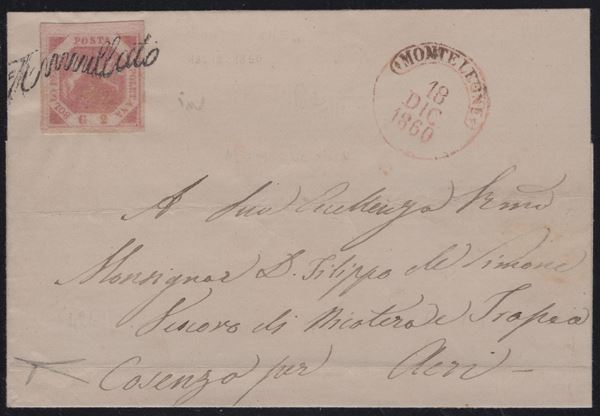 Annullato
POSTA
NAPOLETANA
BOLLO DELLA
G 2
MONTELEONE
18
DIC
1860
A Sua Eccellenza Rma
Monsignor D. Filippo de Simone
Vescovo di Nicotera e Tropea
Cosenza per Acri